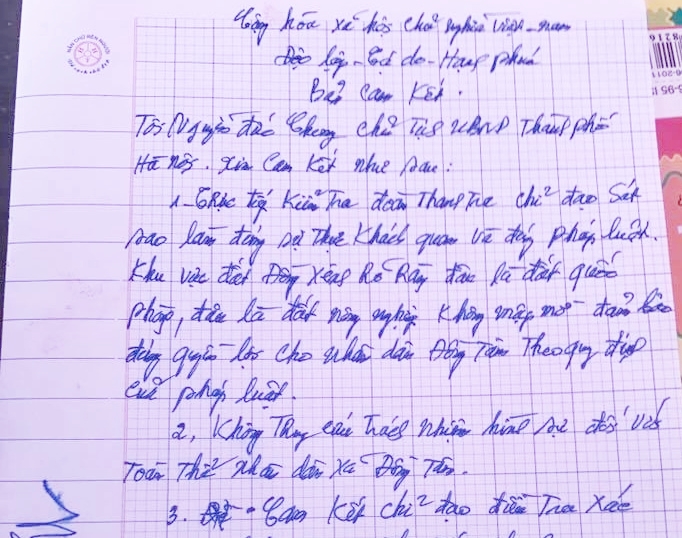 Cộng hòa xã hội chủ nghĩa Việt-nam
Độc lập - Tự do - Hạnh phúc
Bản Cam Kết.
Tôi Nguyễn đức Chung chủ tịch UBND Thành phố
Hà nội. xin Cam Kết như sau:
1 - Trực tiếp Kiểm Tra đoàn Thanh Tra chỉ đạo Sát
sao làm đúng sự Thực Khách quan và đúng pháp luật.
Khu vực đất Đồng Xênh Rõ Ràng đâu là đất quốc
phòng, đâu là đất nông nghiệp không mập mờ đảm bảo
đúng quyền lợi cho nhân dân Đồng Tâm Theo quy định
của pháp luật.
2, Không Truy cứu Trách nhiệm hình sự đối với
Toàn Thể nhân dân xã Đồng Tâm.
3. Cam Kết chỉ đạo điều Tra Xác